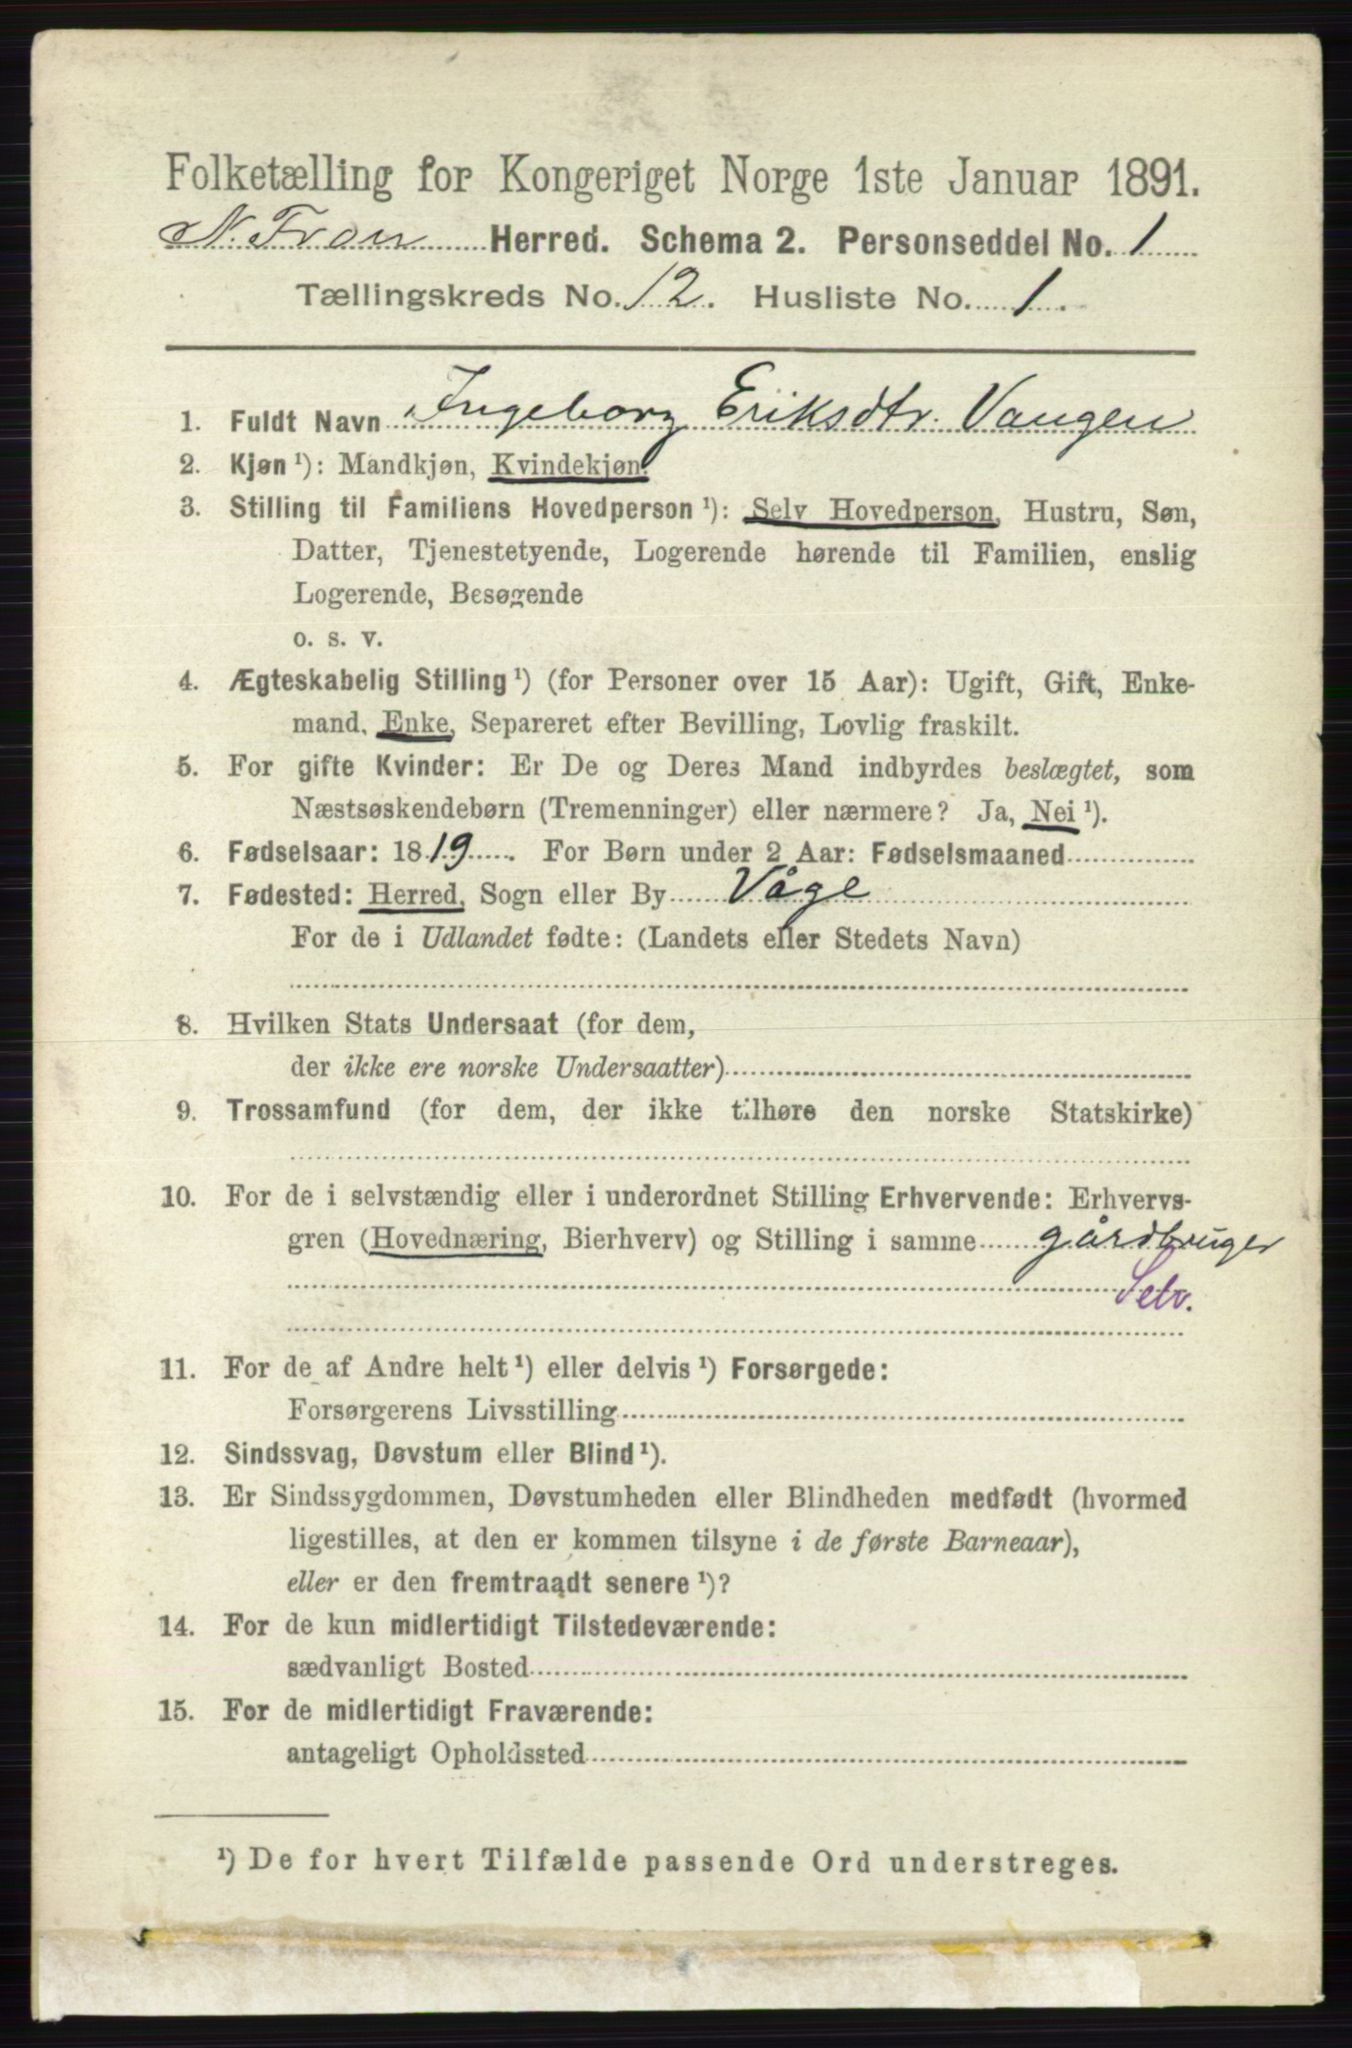 Folketælling for Kongeriget Norge 1ste Januar 1891.
N. Fron Herred. Schema 2. Personseddel No. 1
Tællingskreds No. 12. Husliste No. 1.
1. Fuldt Navn Ingeborg Eriksdtr. Vangen
2. Kjøn ¹): Mandkjøn, Kvindekjøn.
3. Stilling til Familiens Hovedperson ¹): Selv Hovedperson, Hustru, Søn,
Datter, Tjenestetyende, Logerende hørende til Familien, enslig
Logerende, Besøgende
o. s. v.
4. Ægteskabelig Stilling ¹) (for Personer over 15 Aar): Ugift, Gift, Enke-
mand, Enke, Separeret efter Bevilling, Lovlig fraskilt.
5. For gifte Kvinder: Er De og Deres Mand indbyrdes beslægtet, som
Næstsøskendebørn (Tremenninger) eller nærmere? Ja, Nei ¹).
6. Fødselsaar: 1819. For Børn under 2 Aar: Fødselsmaaned
7. Fødested: Herred, Sogn eller By Våge
For de i Udlandet fødte: (Landets eller Stedets Navn)
8. Hvilken Stats Undersaat (for dem,
der ikke ere norske Undersaatter)
9. Trossamfund (for dem, der ikke tilhøre den norske Statskirke)
10. For de i selvstændig eller i underordnet Stilling Erhvervende: Erhvervs-
gren (Hovednæring, Bierhverv) og Stilling i samme gårdbruger
Selv.
11. For de af Andre helt ¹) eller delvis ¹) Forsørgede:
Forsørgerens Livsstilling
12. Sindssvag, Døvstum eller Blind ¹).
13. Er Sindssygdommen, Døvstumheden eller Blindheden medfødt (hvormed
ligestilles, at den er kommen tilsyne i de første Barneaar),
eller er den fremtraadt senere ¹)?
14. For de kun midlertidigt Tilstedeværende:
sædvanligt Bosted
15. For de midlertidigt Fraværende:
antageligt Opholdssted
¹) De for hvert Tilfælde passende Ord understreges.